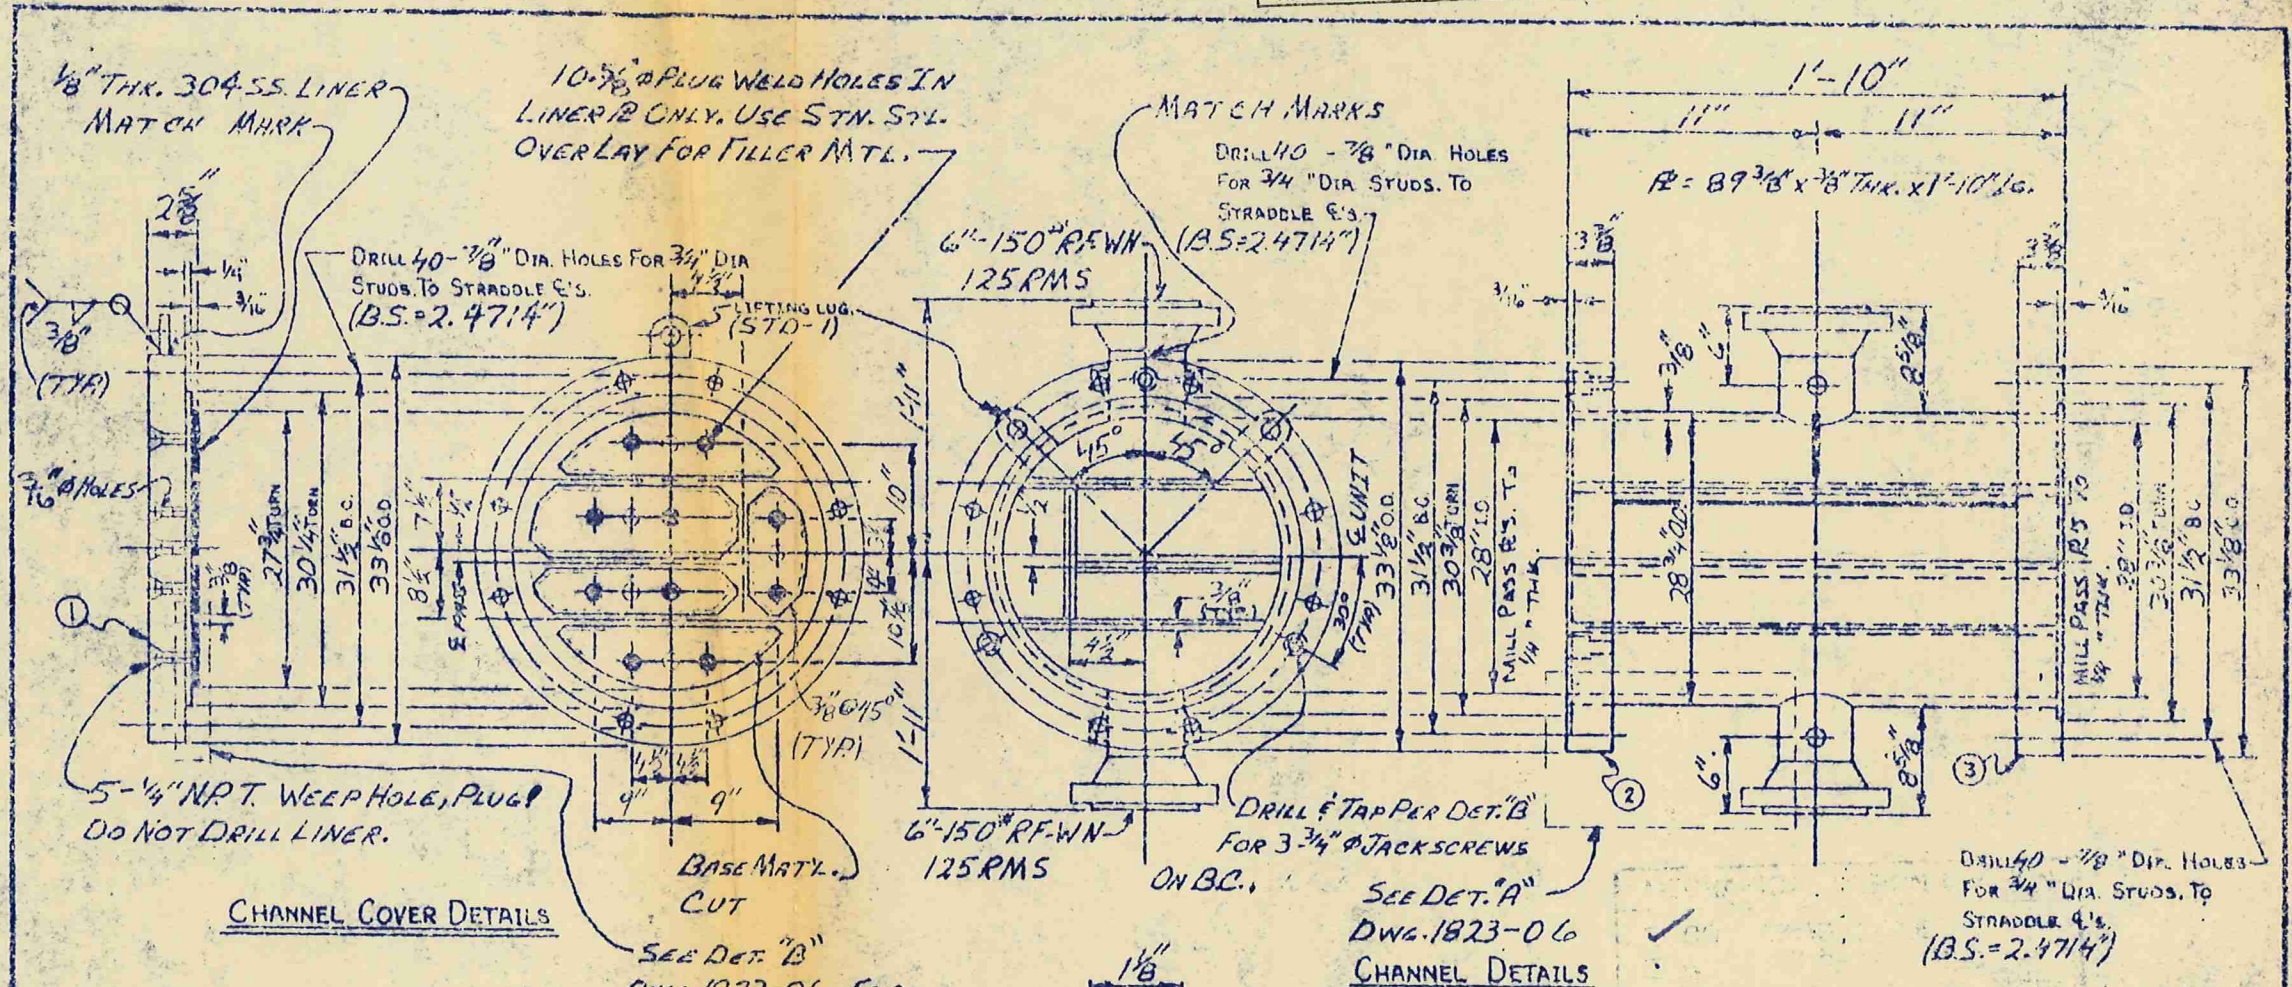 1/8" THK. 304 SS. LINER
MATCH MARK
10-5/8" Ø PLUG WELD HOLES IN
LINER ℞ ONLY. USE STN. STL.
OVERLAY FOR FILLER MTL.
MATCH MARKS
DRILL 40 - 7/8" DIA. HOLES
FOR 3/4" DIA STUDS. TO
STRADDLE ℄'s.
(B.S=2.4714")
6"-150# RFWN
125 RMS
1'-10"
11"
11"
℞ = 89 3/8" x 3/8" THK. x 1'-10" LG.
2 5/8"
1/4"
3/16"
3/8"
(TYP.)
DRILL 40 - 7/8" DIA. HOLES FOR 3/4" DIA
STUDS. TO STRADDLE ℄'s.
(B.S.=2.4714")
4 1/2"
5
LIFTING LUG.
(STD-1)
3 3/8"
3 3/8"
3/16"
3/16"
3/8
6"
8 5/8"
1'-11"
Ø HOLES
3/8
(TYP)
27 3/4" TURN
30 1/4" TURN
31 1/2" B.C.
33 1/8" O.D
7 1/2"
1/2"
8 1/2"
℄ PASS
10"
4"
10 1/2"
1'-11"
45°
45°
1/2
4 1/2
3/8"
(TYP.)
30°
(TYP.)
℄ UNIT
33 1/8" O.D.
31 1/2" B.C.
30 3/8" TURN
28" I.D
MILL PASS ℞'S. TO
1/4" THK.
28 3/4" O.D.
MILL PASS ℞'S TO
1/4" THK.
28" I.D
30 3/8" TURN
31 1/2" B.C
33 1/8" O.D
1
3/8" @ 45°
(TYP.)
4 1/2
4 1/2
9"
9"
5-1/4" N.P.T. WEEP HOLE, PLUG
DO NOT DRILL LINER.
BASE MAT'L.
CUT
6"-150# RF-WN
125 RMS
DRILL & TAP PER DET. "B"
FOR 3-3/4" Ø JACKSCREWS
ON B.C.
2
3
6"
8 5/8"
SEE DET. "A"
DWG. 1823-06
CHANNEL DETAILS
DRILL 40 - 7/8" DIA. HOLES
FOR 3/4" DIA. STUDS. TO
STRADDLE ℄'s.
(B.S.=2.4714")
CHANNEL COVER DETAILS
SEE DET. "B"
1 1/8"